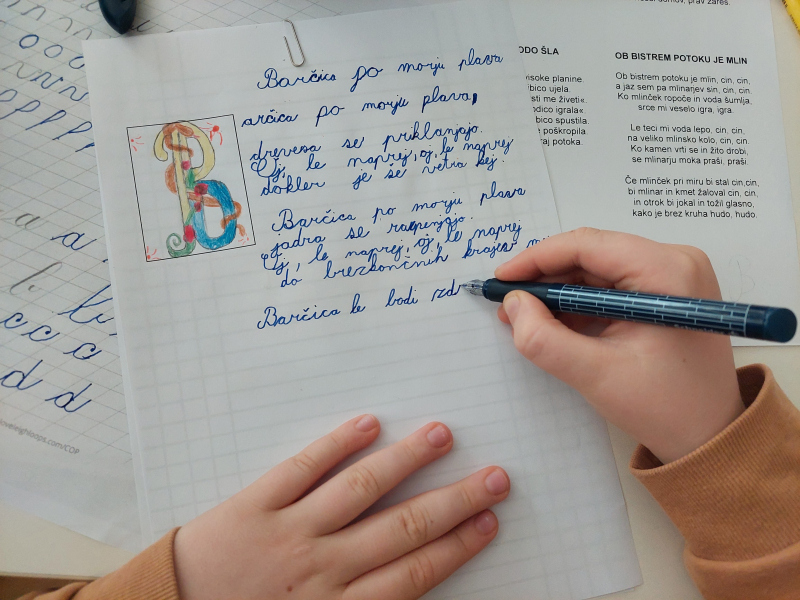 Barčica po morju plava
arčica po morju plava,
drevesa se priklanjajo.
Oj, le naprej, oj, le naprej
dokler je še vetra kej.
Barčica po morju plava
jadra se razpenjajo.
Oj, le naprej, oj, le naprej
do brezkončnih krajev
Barčica le bodi zdr
ODO ŠLA
visoke planine.
bico ujela.
sti me živeti«.
odico igrala«
bico spustila.
e poškropila.
raj potoka.
prav zares.
OB BISTREM POTOKU JE MLIN
Ob bistrem potoku je mlin, cin, cin,
a jaz sem pa mlinarjev sin, cin, cin.
Ko mlinček ropoče in voda šumlja,
srce mi veselo igra, igra.
Le teci mi voda lepo, cin, cin,
na veliko mlinsko kolo, cin, cin.
Ko kamen vrti se in žito drobi,
se mlinarju moka praši, praši.
Če mlinček pri miru bi stal cin,cin,
bi mlinar in kmet žaloval cin, cin,
in otrok bi jokal in tožil glasno,
kako je brez kruha hudo, hudo.
a a
c c c
d d